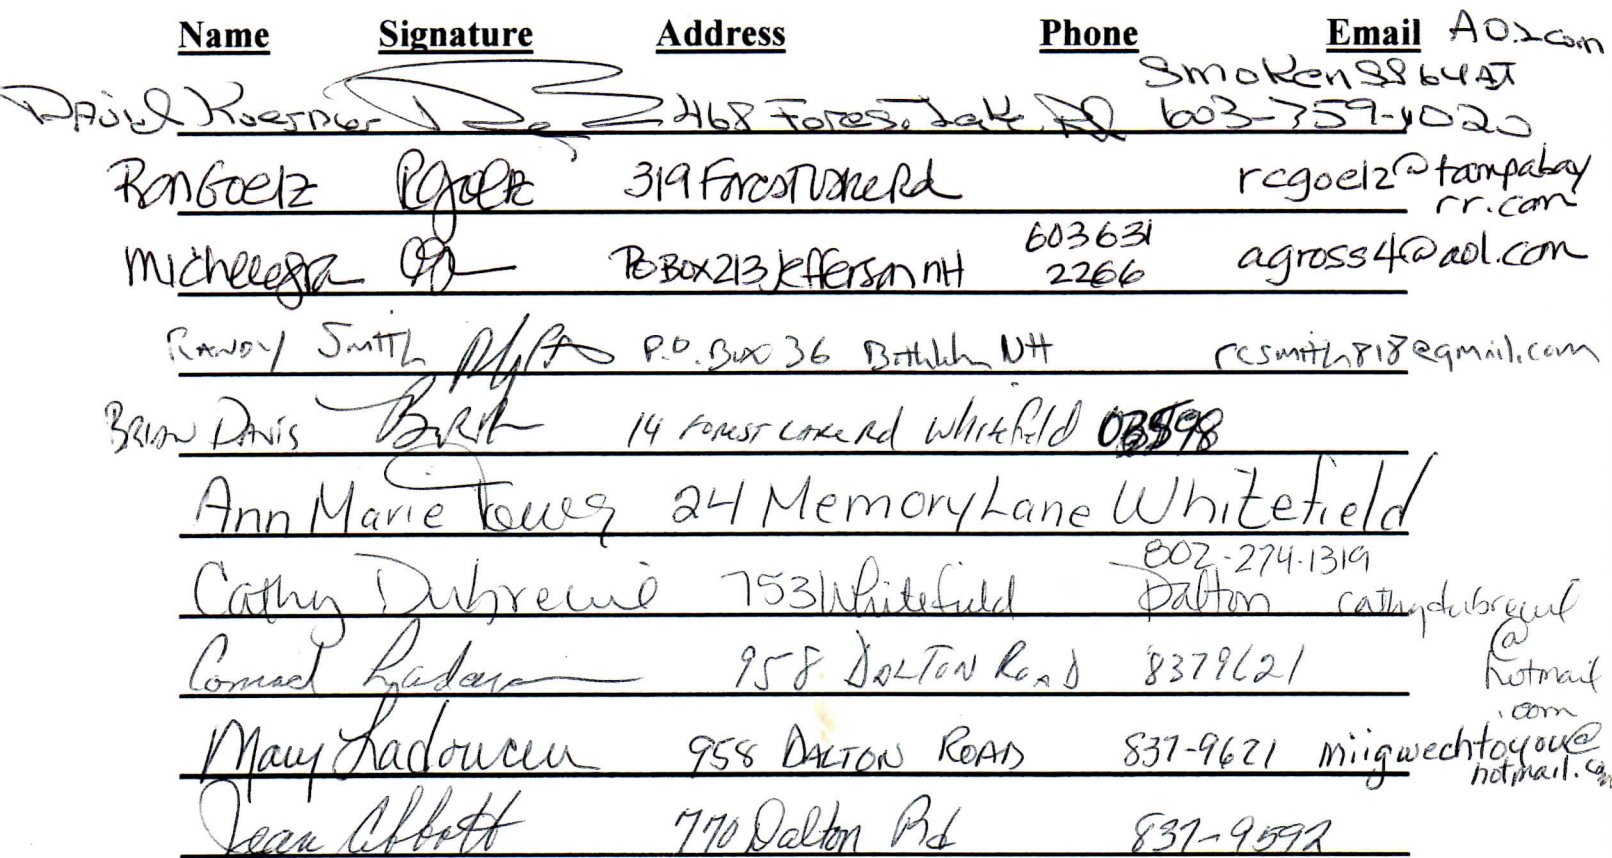 Name Signature Address Phone Email AOL.com
SmoKen SS64 AT
David 468 Forest Lake Rd 603-759-4020
Ron Goelz RGoelz 319 Forest Lake Rd rcgoelz@tampabay
rr.com
603 631
Michele PO Box 213 Jefferson NH 2266 agross4@aol.com
RANDY SMITH P.O. Box 36 Bethlehem NH rcsmith818@gmail.com
BRIAN DAVIS 14 FOREST LAKE Rd Whitefield 03598
Ann Marie 24 Memory Lane Whitefield
802-274-1319
Cathy Dubreuil 753 Whitefield Dalton cathydubreuil
@
hotmail
.com
Conrad 958 DALTON ROAD 8379621
Mary Ladouceur 958 DALTON ROAD 837-9621 miigwechtoyou@
hotmail.com
Jean Abbott 770 Dalton Rd 837-9592